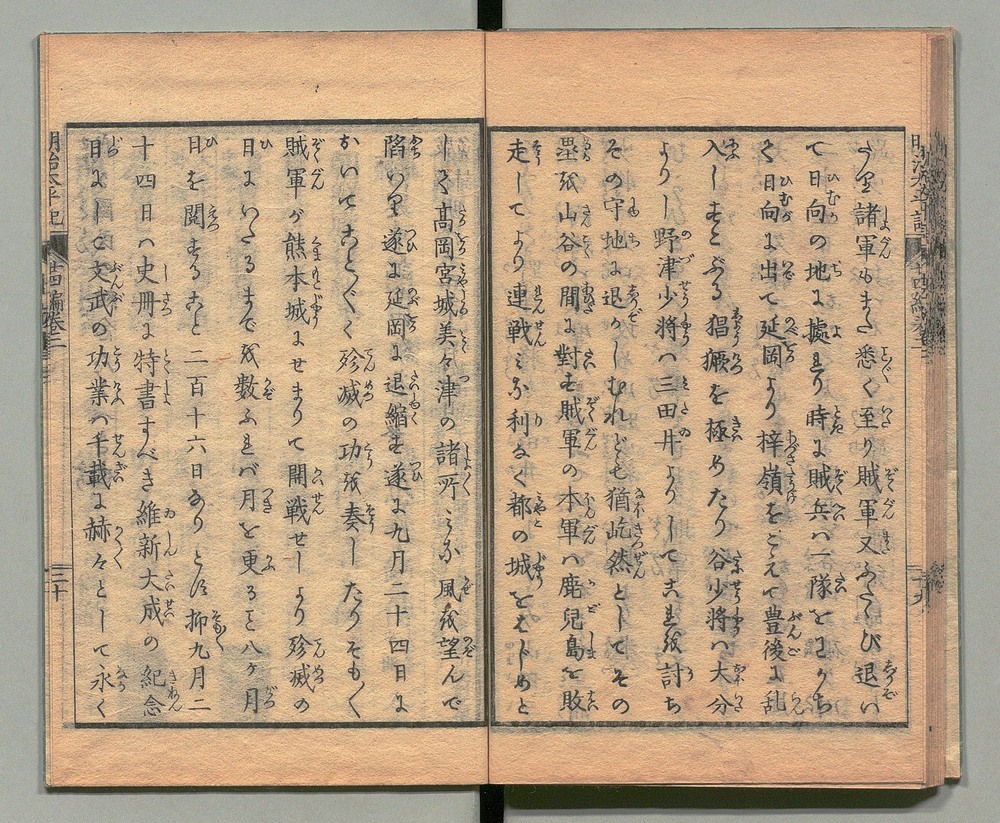 うり諸軍もまた悉く至り賊軍又ふたゝび退い
て日向の地に據れり時に賊兵ハ一隊をわかち
て日向に出て延岡より梓嶺をこえて豊後に乱
入しすこぶる猖獗を極めたり谷少将ハ大分
より野津少将ハ三田井よりしてこれを討ち
その守地に退かしむれども猶屹然としてその
塁を山谷の間に對す賊軍の本軍ハ鹿兒島を敗
走してより連戦みな利なく都の城をはじめと
して高岡宮城美々津の諸所みな風を望んで
陥いり遂に延岡に退縮す遂に九月二十四日に
おいてこと〴〵く殄滅の功を奏したりそも〳〵
賊軍が熊本城にせまりて開戦せしより殄滅の
日にいたるまでを数ふれバ月を更ること八ヶ月
日を閲すること二百十六日なりとぞ抑九月二
十四日ハ史冊に特書すべき維新大成の紀念
日にして文武の功業ハ千載に赫々として永く
明治太平記
廿四編巻二
二十